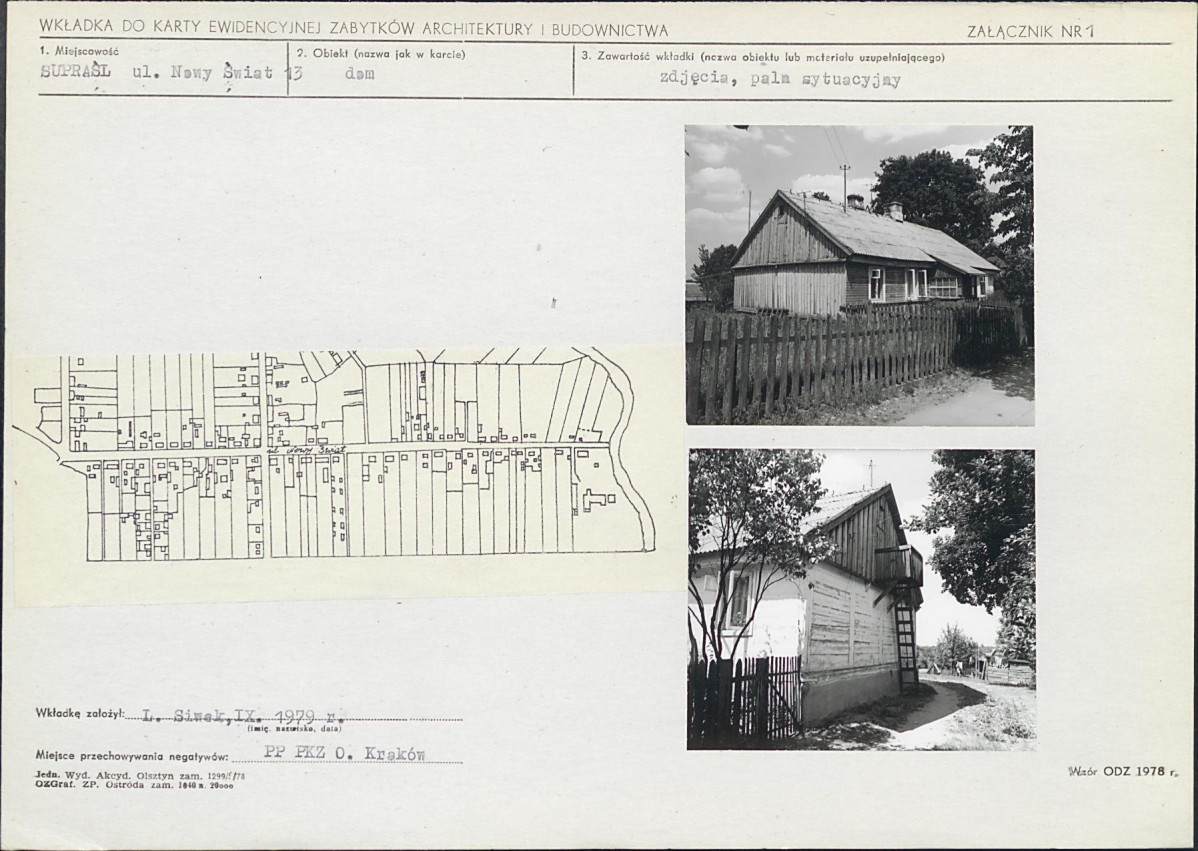 WKŁADKA DO KARTY EWIDENCYJNEJ ZABYTKÓW ARCHITEKTURY I BUDOWNICTWA ZAŁĄCZNIK NR 1
1. Miejscowość
2. Obiekt (nazwa jak w karcie)
3. Zawartość wkładki (nazwa obiektu lub materiału uzupełniającego)
SUPRAŚL ul. Nowy Świat 13
dom
zdjęcia, paln sytuacyjny
ul. Nowy Świat
Wkładkę założył: L. Siwek, IX. 1979 r.
(imię, nazwisko, data)
Miejsce przechowywania negatywów: PP PKZ O. Kraków
Jedn. Wyd. Akcyd. Olsztyn zam. 1299/ /78
OZGraf. ZP. Ostróda zam. 1040 n. 20000
Wzór ODZ 1978 r.